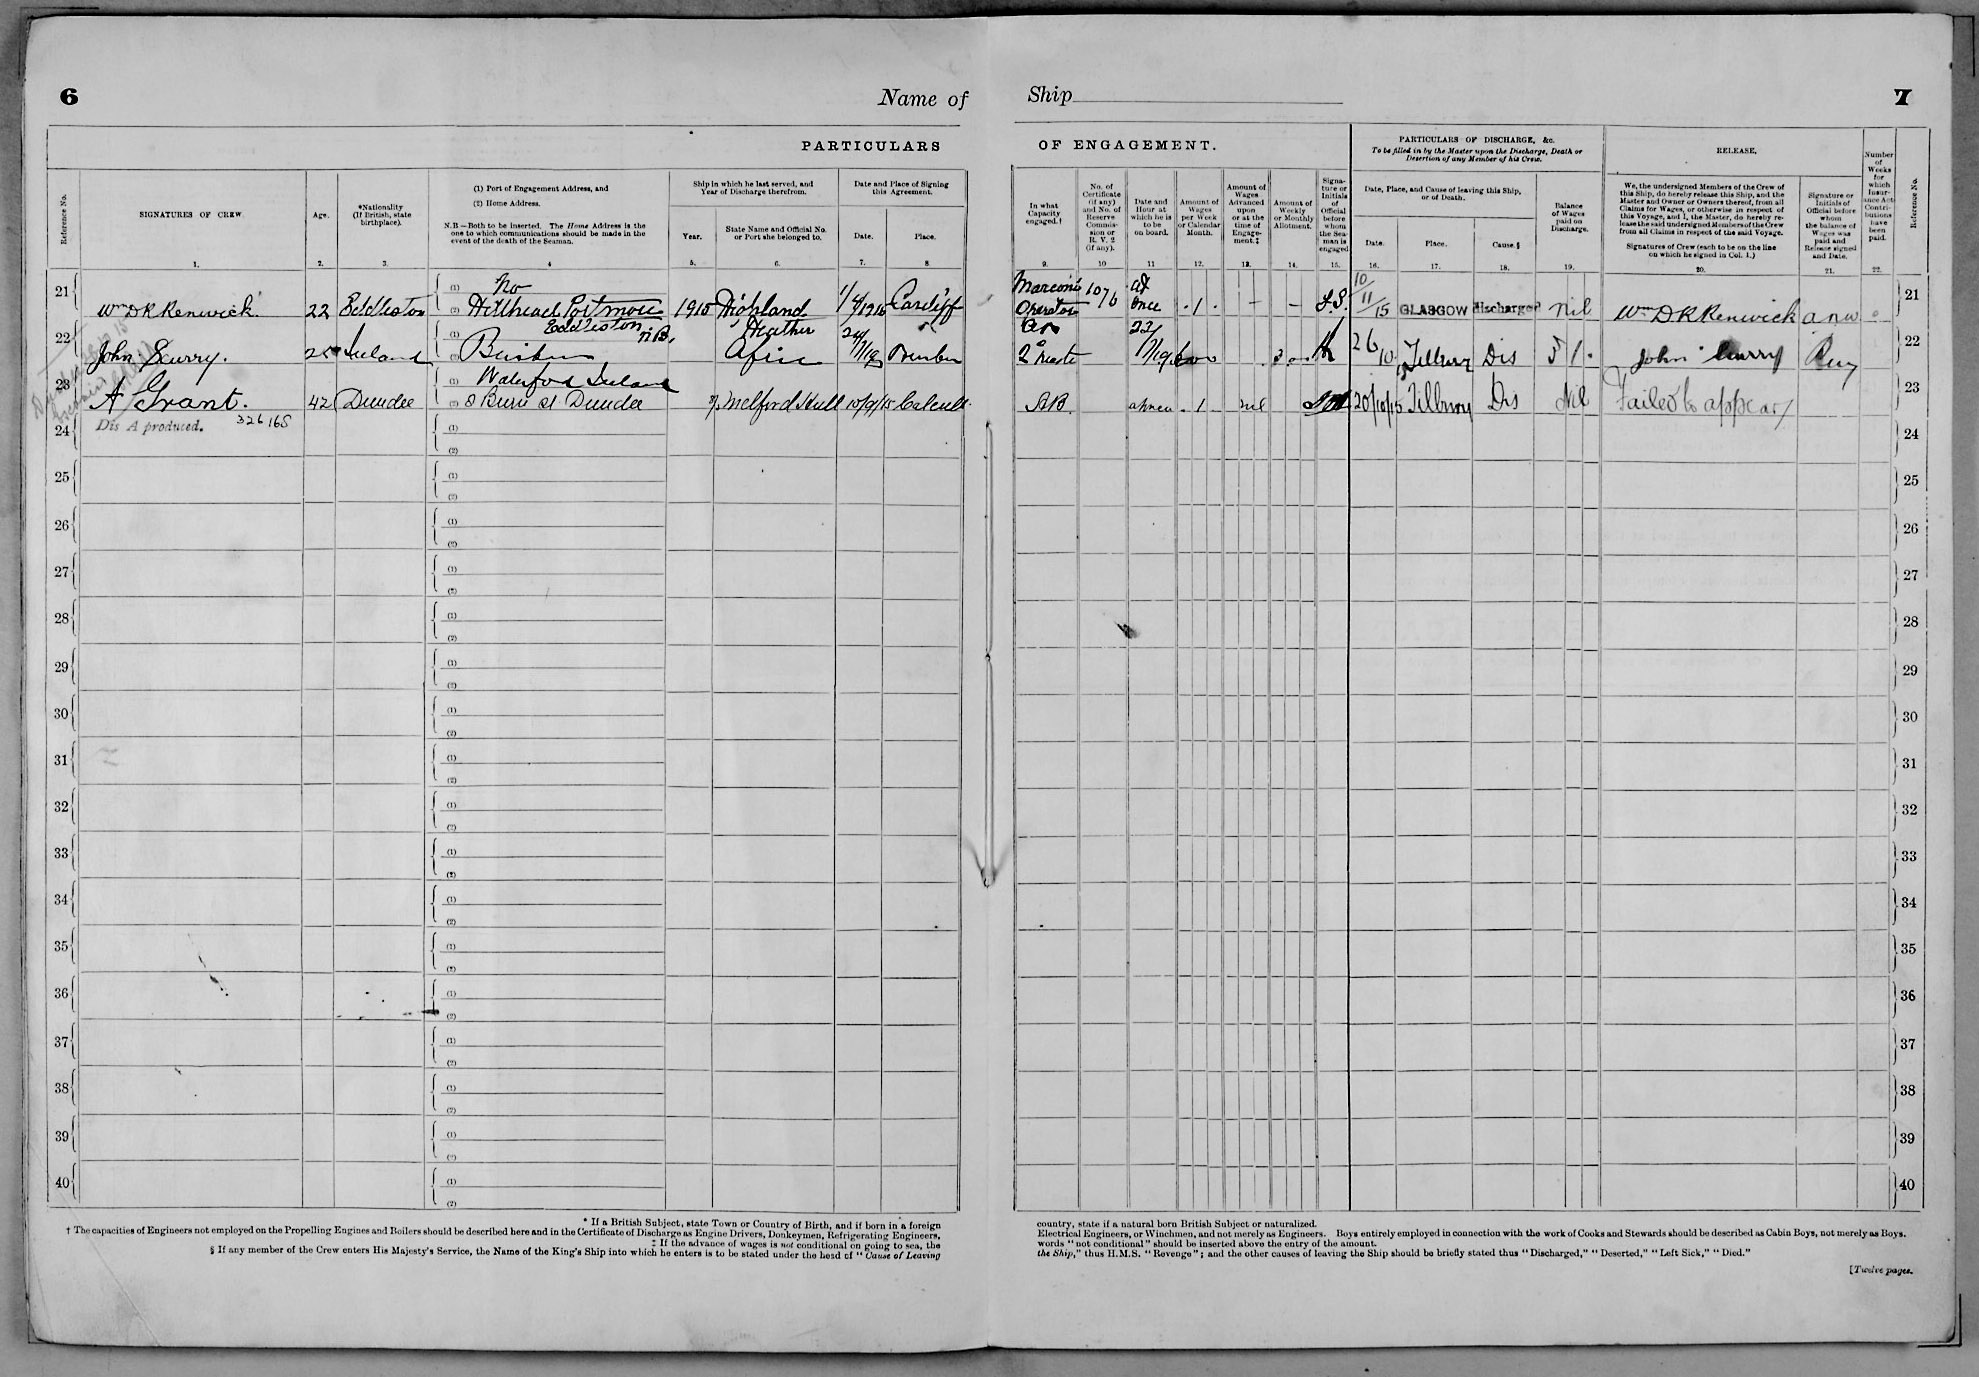 6
Name of
Ship
7
PARTICULARS
OF ENGAGEMENT.
PARTICULARS OF DISCHARGE, &c.
To be filled in by the Master upon the Discharge, Death or
Desertion of any Member of his Crew.
RELEASE.
Number of Weeks for which Insurance Act Contributions have been paid.
Reference No.
SIGNATURES OF CREW
Age.
*Nationality
(If British, state
birthplace).
(1) Port of Engagement Address, and
(2) Home Address.
N.B.—Both to be inserted. The Home Address is the
one to which communications should be made in the
event of the death of the Seaman.
Ship in which he last served, and
Year of Discharge therefrom.
Year.
State Name and Official No.
or Port she belonged to.
Date and Place of Signing
this Agreement.
Date.
Place.
In what
Capacity
engaged.†
No. of
Certificate
(if any)
and No. of
Reserve
Commis-
sion or
R. V. 2
(if any).
Date and
Hour at
which he is
to be
on board.
Amount of
Wages
per Week
or Calendar
Month.
Amount of
Wages
Advanced
upon
or at the
time of
Engage-
ment.‡
Amount of
Weekly
or Monthly
Allotment.
Signa-
ture or
Initials
of
Official
before
whom
the Sea-
man is
engaged
Date, Place, and Cause of leaving this Ship,
or of Death.
Date.
Place.
Cause.§
Balance
of Wages
paid on
Discharge.
We, the undersigned Members of the Crew of
this Ship, do hereby release this Ship, and the
Master and Owner or Owners thereof, from all
Claims for Wages, or otherwise in respect of
this Voyage, and I, the Master, do hereby re-
lease the said undersigned Members of the Crew
from all Claims in respect of the said Voyage.
Signatures of Crew (each to be on the line
on which he signed in Col. 1.)
Signature or
Initials of
Official before
whom
the balance of
Wages was
paid and
Release signed
and Date.
Reference No.
1. 2. 3. 4 5. 6. 7. 8. 9. 10 11 12. 13. 14. 15. 16. 17. 18. 19. 20. 21. 22.
21 Wm D R Renwick 22 Eddleston (1) No (2) Hillhead Portmore Eddleston N.B. 1915 Highland Heather 1/4/1915 Cardiff Marconi Operator 1076 at once 1 - - 10/11/15 GLASGOW discharged Nil Wm D R Renwick 21
22 John Scurry. 25 Ireland (1) (2) Waterford Ireland 2 Mate 26/10 Tilbury Dis John Scurry 22
23 A Grant. 42 Dundee (1) (2) 8 Burn St Dundee Melford Hull 10/9/15 AB 1 nil 20/10/15 Tilbury Dis Nil Failed to appear 23
Dis A produced. 326165
24 (1) (2) 24
25 (1) (2) 25
26 (1) (2) 26
27 (1) (2) 27
28 (1) (2) 28
29 (1) (2) 29
30 (1) (2) 30
31 (1) (2) 31
32 (1) (2) 32
33 (1) (2) 33
34 (1) (2) 34
35 (1) (2) 35
36 (1) (2) 36
37 (1) (2) 37
38 (1) (2) 38
39 (1) (2) 39
40 (1) (2) 40
* If a British Subject, state Town or Country of Birth, and if born in a foreign
† The capacities of Engineers not employed on the Propelling Engines and Boilers should be described here and in the Certificate of Discharge as Engine Drivers, Donkeymen, Refrigerating Engineers,
‡ If the advance of wages is not conditional on going to sea, the
§ If any member of the Crew enters His Majesty's Service, the Name of the King's Ship into which he enters is to be stated under the head of "Cause of Leaving
country, state if a natural born British Subject or naturalized.
Electrical Engineers, or Winchmen, and not merely as Engineers. Boys entirely employed in connection with the work of Cooks and Stewards should be described as Cabin Boys, not merely as Boys.
words "not conditional" should be inserted above the entry of the amount.
the Ship," thus H.M.S. "Revenge"; and the other causes of leaving the Ship should be briefly stated thus "Discharged," "Deserted," "Left Sick," "Died."
[Twelve pages.